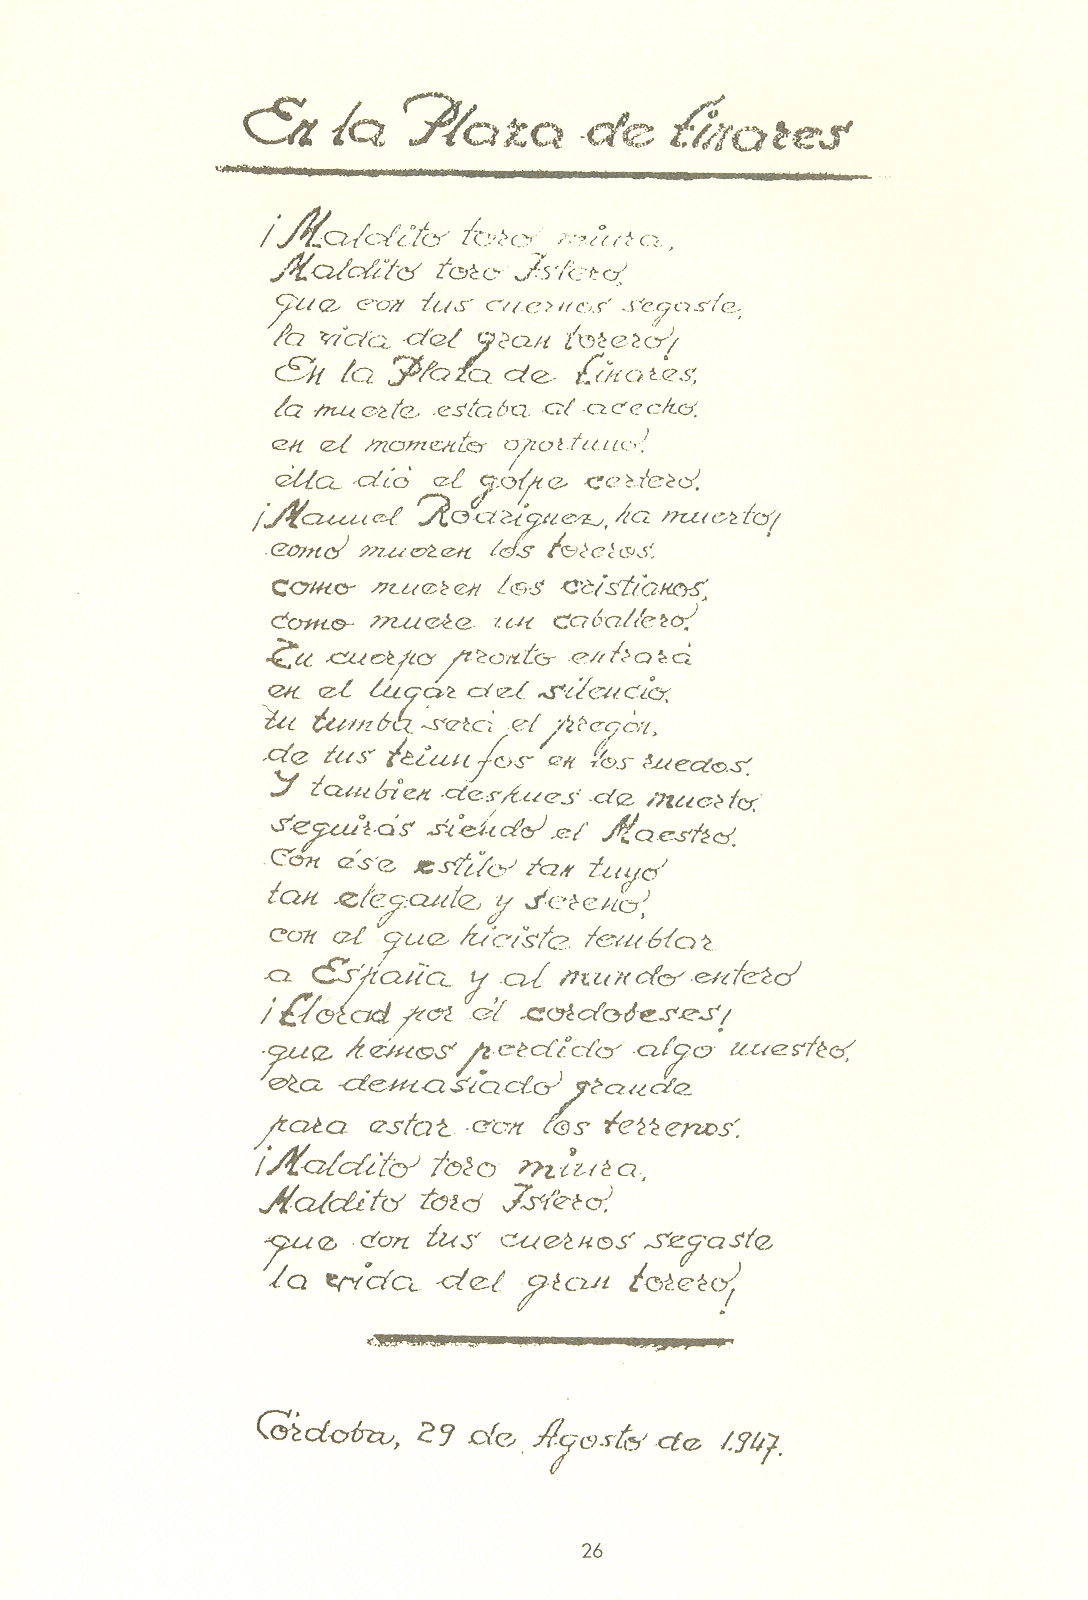 En la Plaza de Linares
¡Maldito toro miura,
Maldito toro Islero,
que con tus cuernos segaste,
la vida del gran torero!
En la Plaza de Linares,
la muerte estaba al acecho.
en el momento oportuno.
élla dió el golpe certero.
¡Manuel Rodriguez, ha muerto!
como mueren los toreros.
como mueren los cristianos,
como muere un caballero.
Tu cuerpo pronto entrará
en el lugar del silencio.
tu tumba será el pregón,
de tus triunfos en los ruedos.
Y tambien despues de muerto.
seguirás siendo el Maestro.
con ése estilo tan tuyo
tan elegante y sereno,
con el que hiciste temblar
a España y al mundo entero
¡Llorad por él cordobeses!
que hémos perdido algo nuestro.
era demasiado grande
para estar con los terrenos.
¡Maldito toro miura,
Maldito toro Islero.
que con tus cuernos segaste
la vida del gran torero!
Córdoba, 29 de Agosto de 1.947.
26